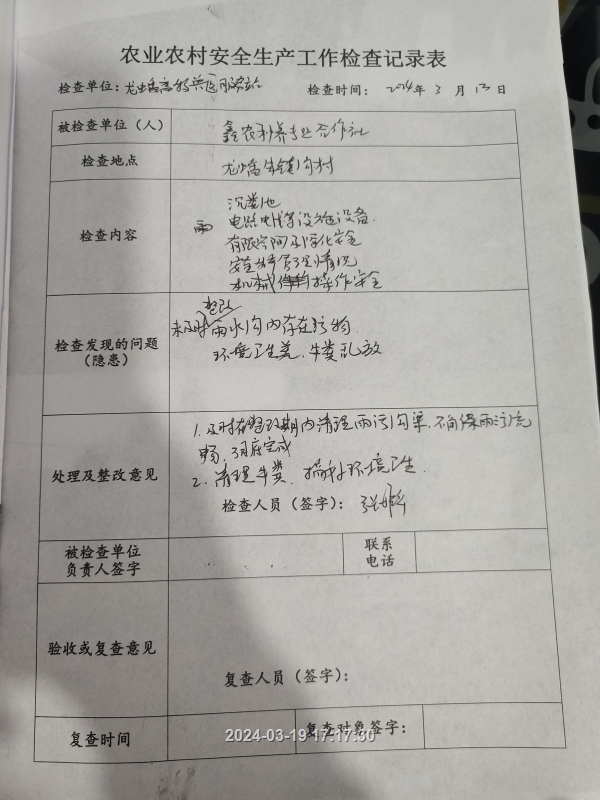 农业农村安全生产工作检查记录表
检查单位：龙蟠畜牧兽医服务站 检查时间： 2024年 3 月 13日
被检查单位（人） 鑫农利养专业合作社
检查地点 龙蟠 镇 沟村
检查内容
沉粪池
雨 电路电线等设施设备
有限空间 净化安全
安全 管理情况
机械 操作安全
检查发现的问题
（隐患）
整改
未及时雨水沟内存在污物
环境卫生差，牛粪乱放
处理及整改意见
1. 及时在整改期内清理雨污沟渠，不 保雨污流
畅，3月底完成
2. 清理牛粪，搞好环境卫生．
检查人员（签字）：
被检查单位
负责人签字
联系
电话
验收或复查意见
复查人员（签字）：
复查时间 复查对象签字：
2024-03-19 17:17:30